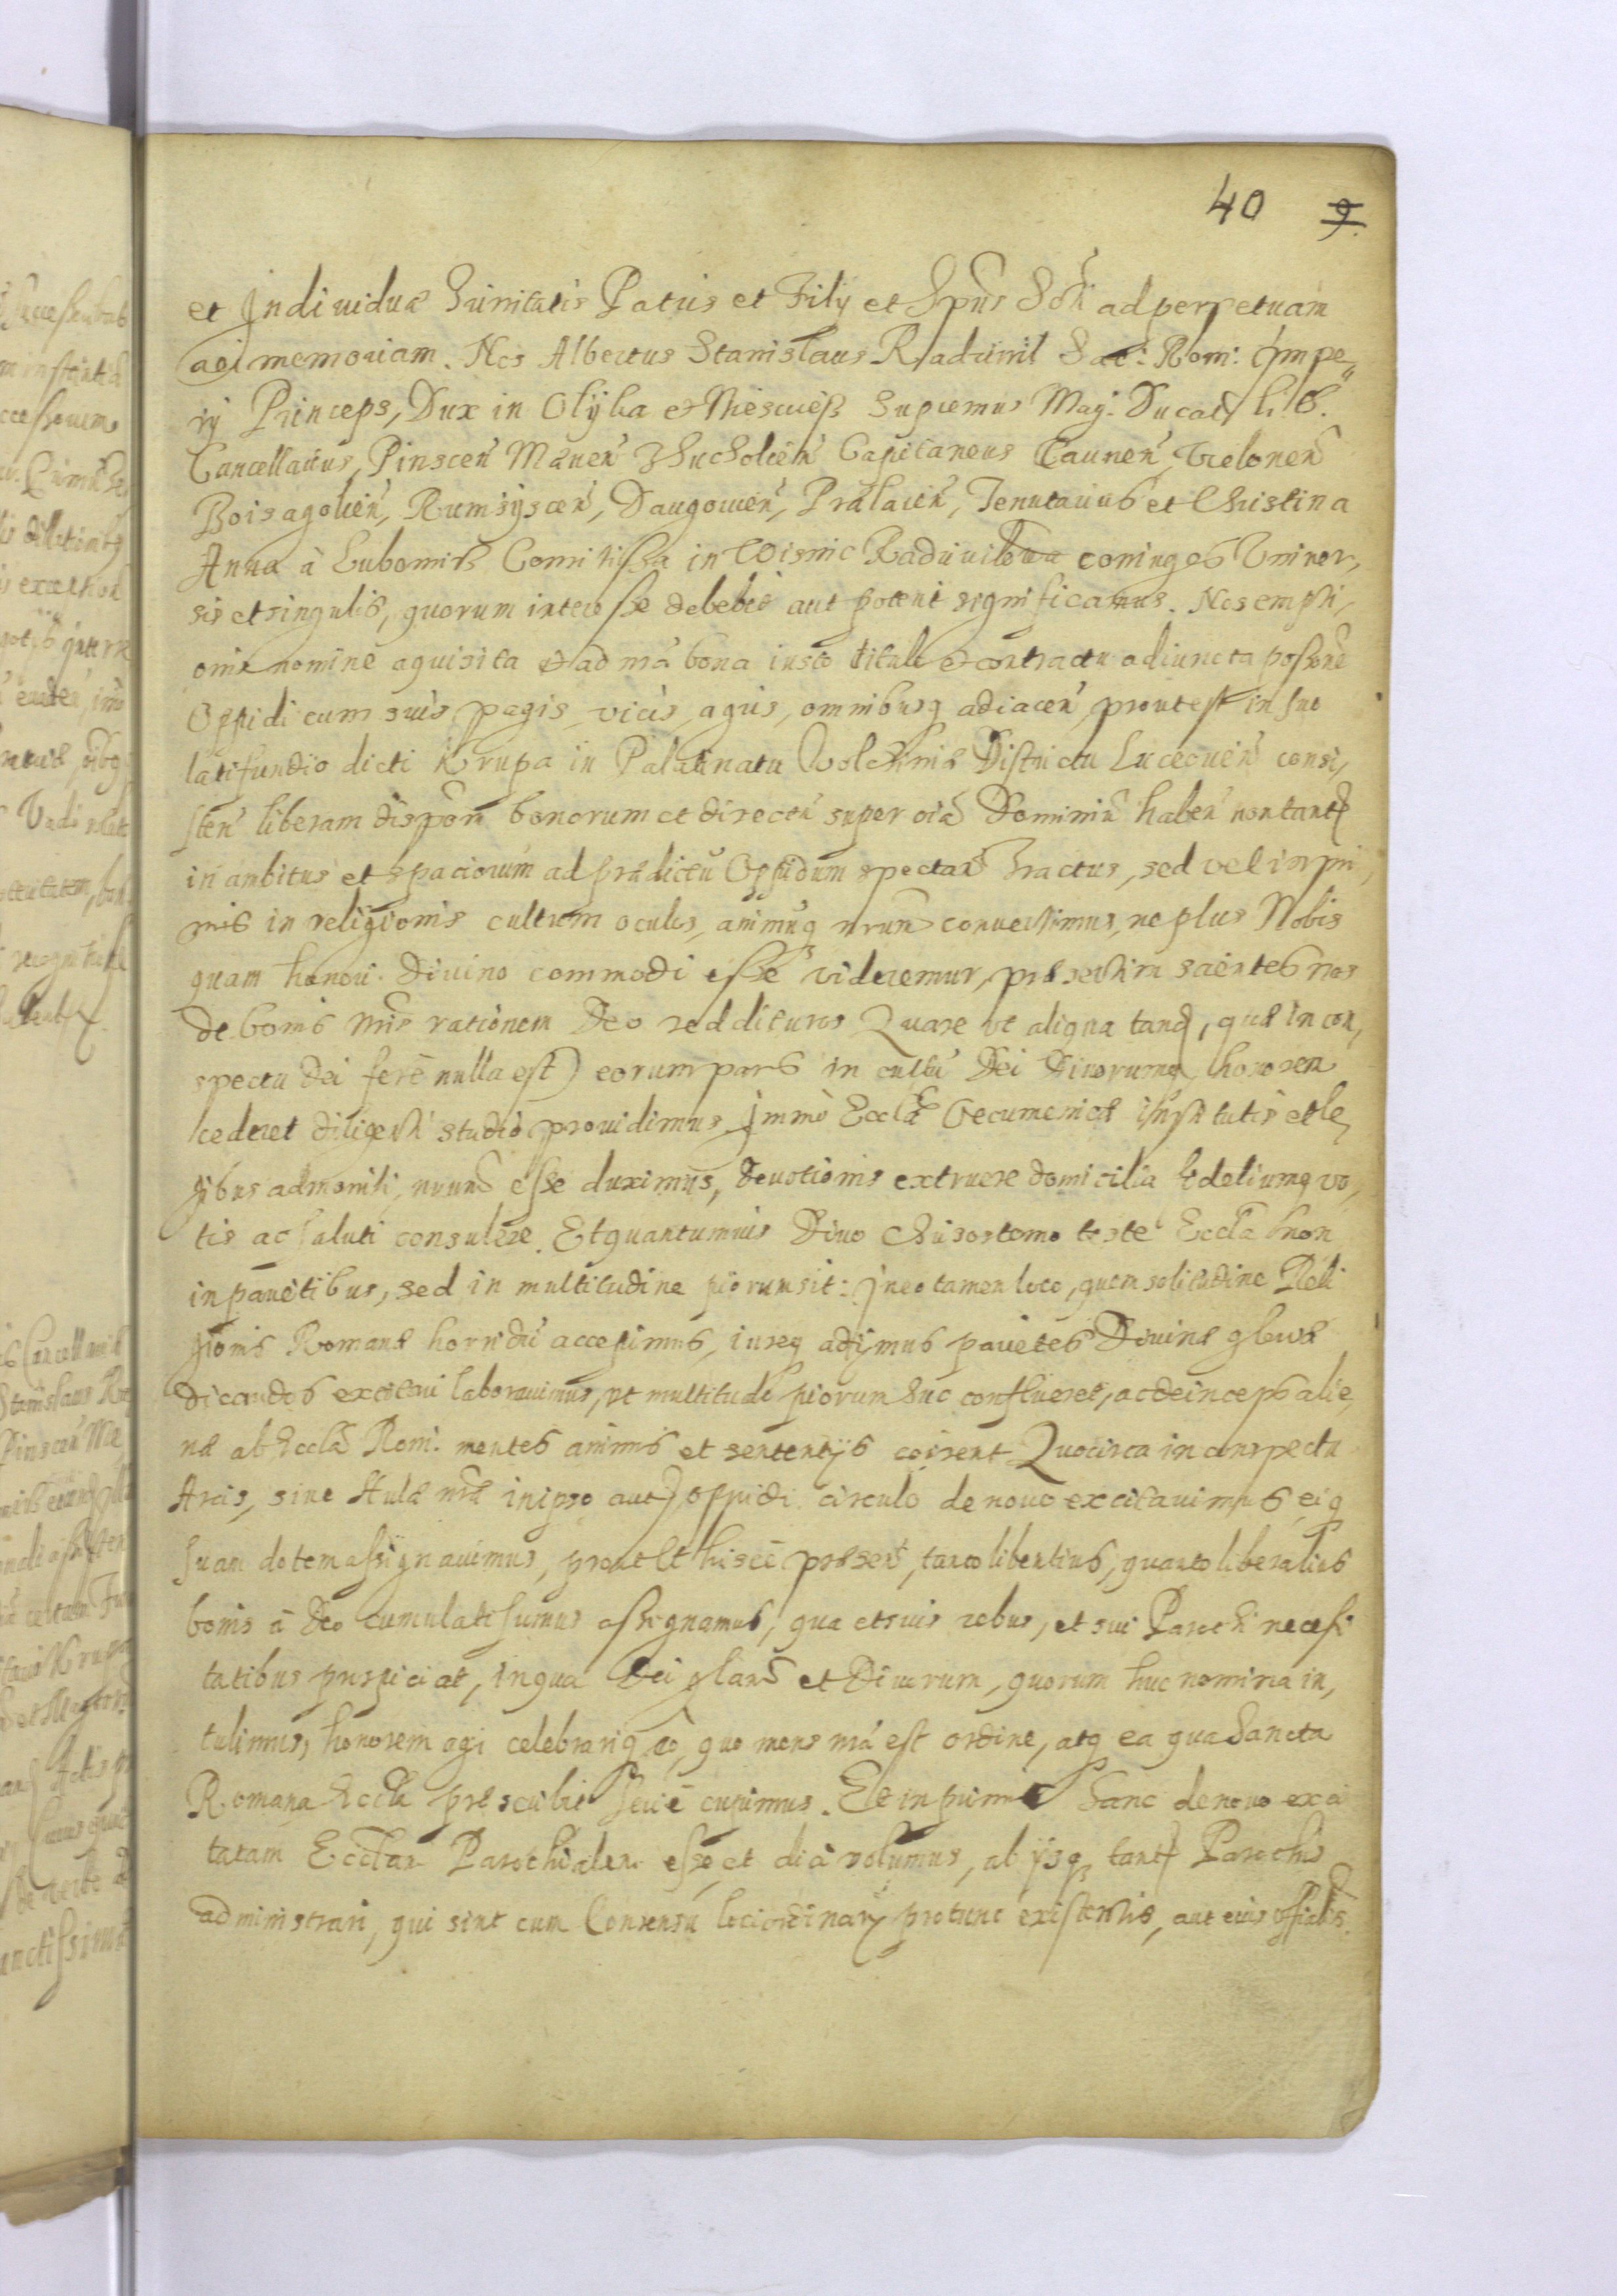 40 9.
et Individuæ Trinitatis Patris et Filij et Spūs Sčti ad perpetuam
rei memoriam. Nos Albertus Stanislaus Radziwil Sac: Rom: Impe„
rij Princeps, Dux in Olÿka et Nieswiesz Supremus Mag. Ducat: Lit.
Cancellarius, Pinscen̄ Mæuen̄ Thucholien̄ Capitaneus Caunen̄ Vielonen̄
Boisagolien̄, Rumsÿscen̄, Daugowien̄, Prælaien̄, Tenutarius et Christina
Anna à Lubomirz Comitissa in Wisnic Radziwilowa coniuges Vniuer,
sis et singulis, quorum interesse debebit aut poterit significamus. Nos empti,
onis nomine aquisita et ad n̄ra bona iusto titulo et contractu adiuncta possōne
Oppidi cum suis pagis, vicis, agris, omnibusq adiacen̄ prout est in suo
latifundio dicti Krupa in Palatinatu Wolhiniæ Districtu Luceorien̄ consi,
sten̄ liberam dispōn̄ bonorum et directū super oīa Dominiū haben̄ non tantū
in ambitus et spaciorum ad prædictū Oppidum spectan̄ tractus, sed vel inpri,
mis in religionis cultum oculos, animūq n̄rum conuertimus, ne plus Nobis
quam honori Diuino commodi esse videremur, præsertim scientes nos
de bonis n̄ris rationem Deo reddituros Quare vt aliqua tand, quæ in con,
spectu Dei ferè nulla est) eorum pars in cultū Dei Diuorumq honorem
cederet diligenti studio prouidimus Immò Ecclæ Oecumenicæ institutis et le,
gibus admoniti, n̄rum esse duximus, deuotionis extruere domicilia fideliumq vo,
tis ac saluti consulere. Et quantumuis Diuo Chrisostomo teste Eccla non
in parietibus, sed in multitudine piorum sit: in eo tamen loco, quem solitudine Reli
gionis Romanæ horridū accepimus, iureq adijmus parietes Diuinæ gloriæ
dicandos excitari laborauimus, vt multitudo piorum huc conflueret, ac deinceps alie,
næ ab Eccla Rom: mentes animis et sententijs coirent Quocirca in conspectu
Arcis, siue Aulæ n̄ræ in ipso autē oppidi circulo de nouo excitauimus, eiq
suam dotem assignauimus, prout et hisce præsen̄t, tanto libentius, quanto liberalius
bonis à Deo cumulati sumus assignamus, qua et suis rebus, et sui Parochi necessi
tatibus prospiciat, in qua Dei glam̄ et Diuorum, quorum huc nomina in,
tulimus, honorem agi celebrariq eo, quo mens n̄ra est ordine, atq ea qua Sancta
Romana Eccla præscribit serie cupimus. Et inprimis hanc de nouo exci
tatam Ecclam Parochialem esse et dici volumus, ab ijsq tantū Parochis
administrari, qui sint cum Consensu loci ordinarij protunc existentis, aut eius officialis.